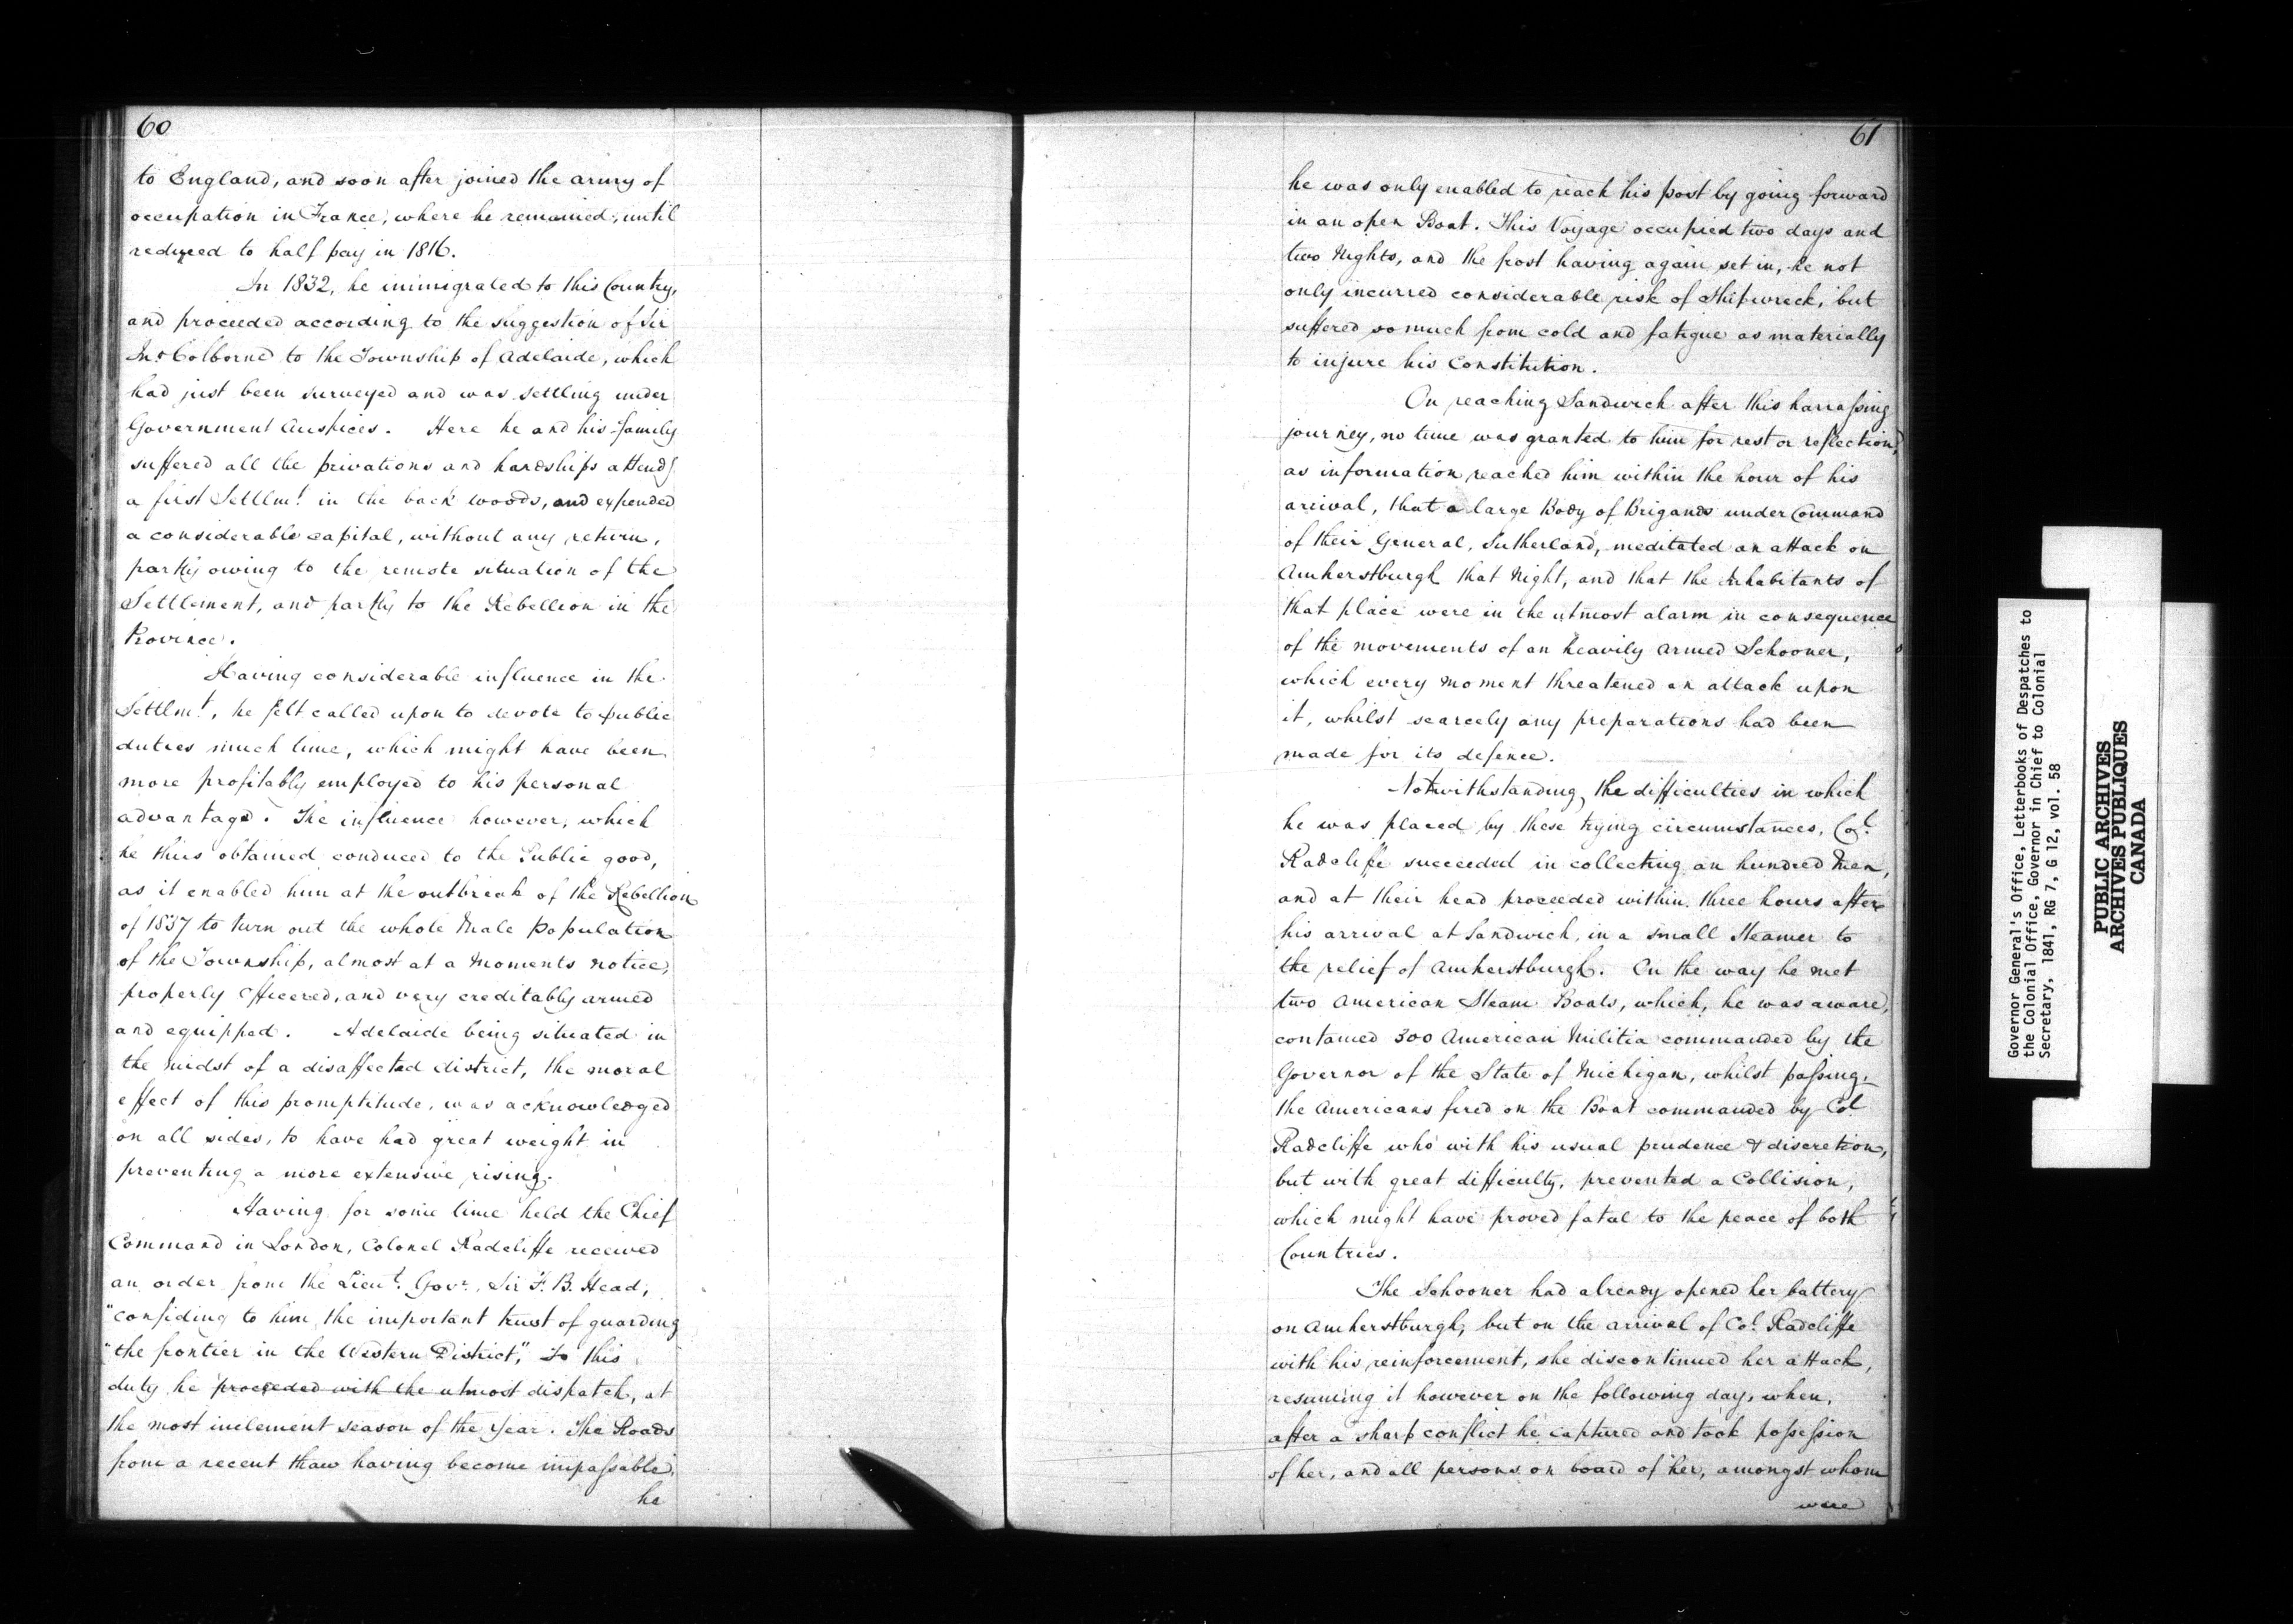 60
to England, and soon after joined the army of
occupation in France, where he remained, until
reduced to half pay in 1816.
In 1832, he immigrated to this Country,
and proceeded according to the suggestion of Sir
Jno. Colborne to the Township of Adelaide, which
had just been surveyed and was settling under
Government Auspices. Here he and his family
suffered all the privations and hardships attendg
a first Settlmt. in the back woods, and expended
a considerable capital, without any return,
partly owing to the remote situation of the
Settlement, and partly to the Rebellion in the
Province.
Having considerable influence in the
Settlmt., he felt called upon to devote to public
duties much time, which might have been
more profitably employed to his personal
advantage. The influence however, which
he thus obtained conduced to the Public good,
as it enabled him at the outbreak of the Rebellion
of 1837 to turn out the whole Male population
of the Township, almost at a Moments notice,
properly Officered, and very creditably armed
and equipped. Adelaide being situated in
the midst of a disaffected district, the moral
effect of this promptitude, was acknowledged
on all sides, to have had great weight in
preventing a more extensive rising.
Having for some time held the Chief
Command in London, Colonel Radcliffe received
an order from the Lieut. Govr., Sir F. B. Head,
"confiding to him the important trust of guarding
"the frontier in the Western District," To this
duty he proceeded with the utmost dispatch, at
the most inclement season of the Year. The Roads
from a recent thaw having become impassable,
he
61
he was only enabled to reach his post by going forward
in an open Boat. This Voyage occupied two days and
two Nights, and the frost having again set in, he not
only incurred considerable risk of Shipwreck, but
suffered so much from cold and fatigue as materially
to injure his Constitution.
On reaching Sandwich after this harrassing
journey, no time was granted to him for rest or reflection,
as information reached him within the hour of his
arrival, that a large Body of Brigands under Command
of their General, Sutherland, meditated an attack on
Amherstburgh that Night, and that the Inhabitants of
that place were in the utmost alarm in consequence
of the movements of an heavily armed Schooner,
which every moment threatened an attack upon
it, whilst scarcely any preparations had been
made for its defence.
Notwithstanding the difficulties in which
he was placed by these trying circumstances, Col.
Radcliffe succeeded in collecting an hundred Men,
and at their head proceeded within three hours after
his arrival at Sandwich, in a small Steamer to
the relief of Amherstburgh. On the way he met
two American Steam Boats, which, he was aware,
contained 300 American Militia commanded by the
Governor of the State of Michigan, whilst passing,
the Americans fired on the Boat commanded by Col.
Radcliffe who with his usual prudence & discretion,
but with great difficulty, prevented a Collision,
which might have proved fatal to the peace of both
Countries.
The Schooner had already opened her battery
on Amherstburgh, but on the arrival of Col. Radcliffe
with his reinforcement, she discontinued her attack,
resuming it however on the following day, when,
after a sharp conflict he captured and took possession
of her, and all persons on board of her, amongst whom
were
Governor General's Office, Letterbooks of Despatches to
the Colonial Office, Governor in Chief to Colonial
Secretary, 1841, RG 7, G 12, vol. 58
PUBLIC ARCHIVES
ARCHIVES PUBLIQUES
CANADA